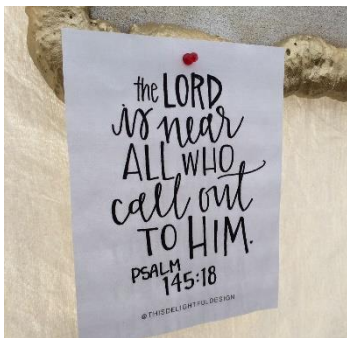 the LORD
is near
ALL WHO
call out
TO HIM.
PSALM
145:18
@THISDELIGHTFULDESIGN